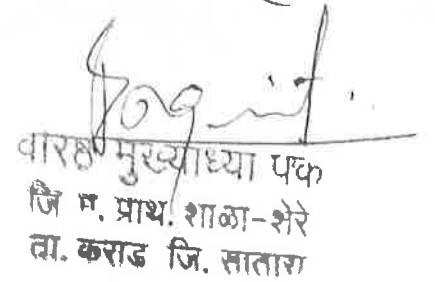 वारष्ठ मुख्याध्या पक
जि प. प्राथ. शाळा-शेरे
ता. कराड जि. सातारा